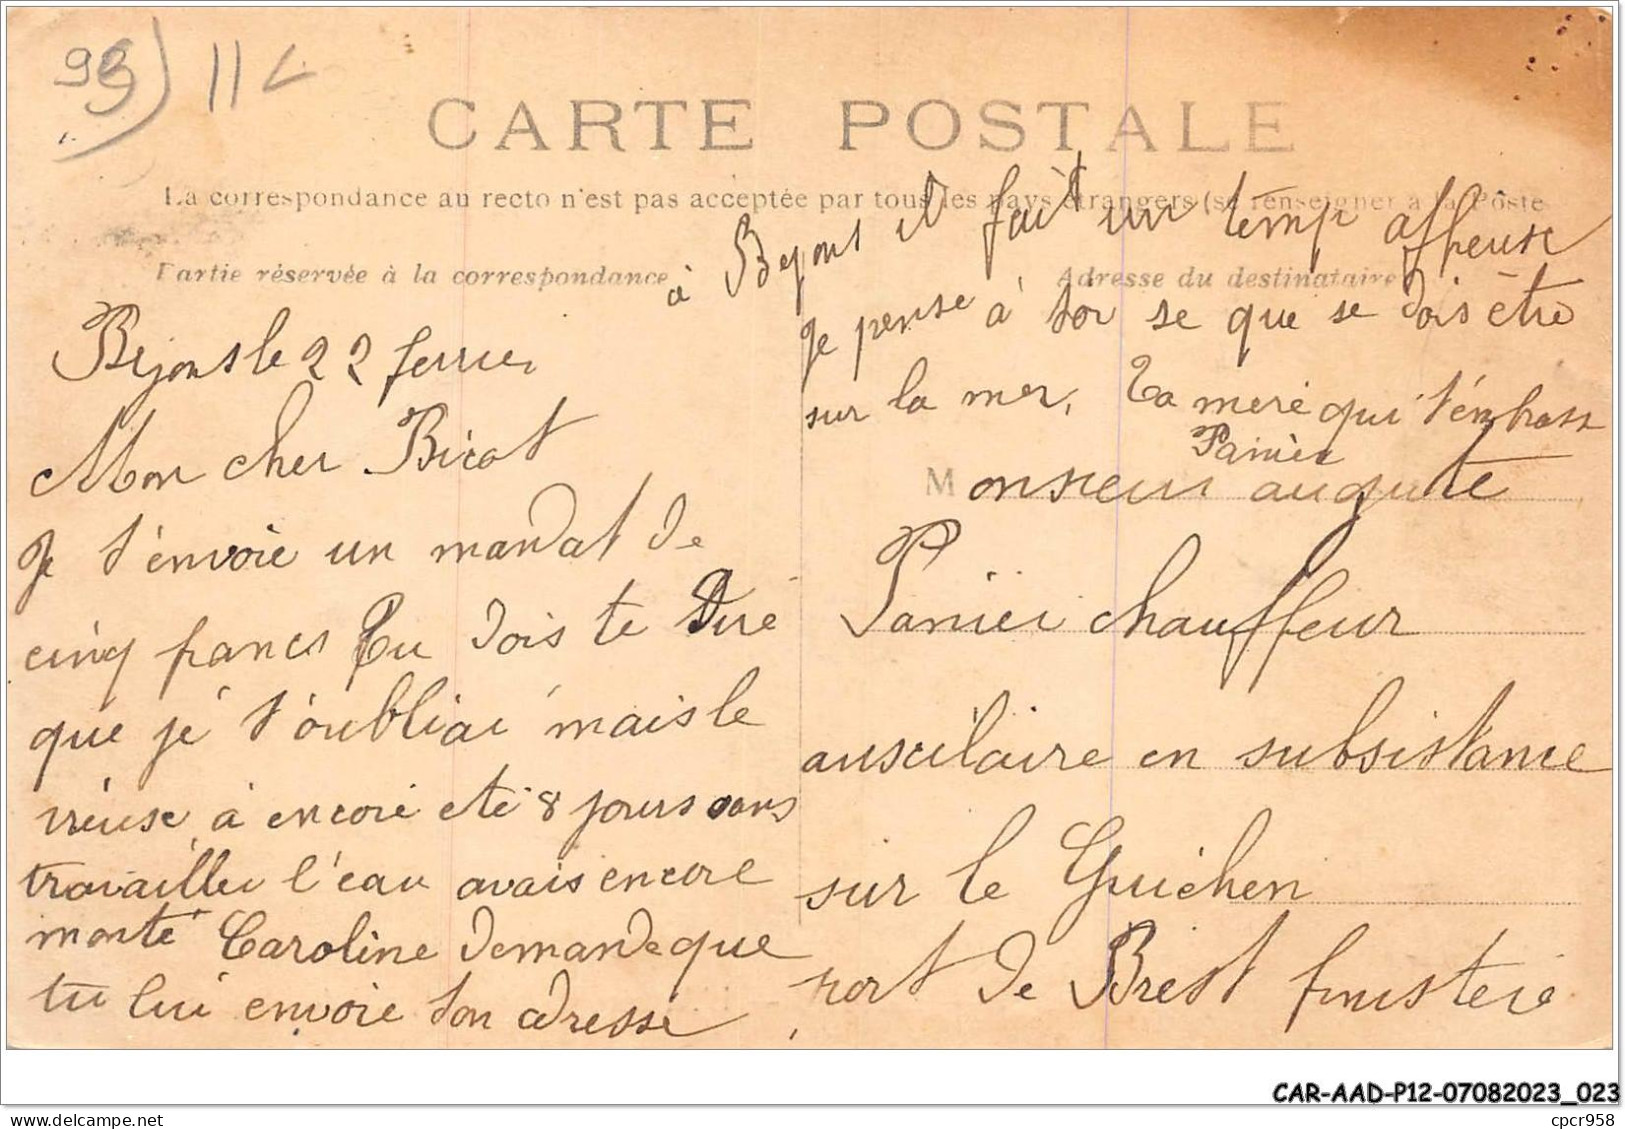 95) 11 L
CARTE POSTALE
La correspondance au recto n'est pas acceptée par tous les pays étrangers (se renseigner à la Poste
Partie réservée à la correspondance
Adresse du destinataire
Bejons le 22 ferrie
Mon cher Bicot
Je t'envoie un mandat de
cinq francs Tu dois te dire
que je t'oubliai mais le
vieuse à encore eté 8 jours sans
travailler l'eau avais encore
monté Caroline demande que
tu lui envoie ton adresse
à Bejons il fait un temp affeuse
je pense à toi se que se dois être
sur la mer, Ta mere qui t'embrass
Panier
Monsieur auguste
Panier chauffeur
auscilaire en subsistance
sur le Guichen
port de Brest finistere
CAR-AAD-P12-07082023_023
www.delcampe.net
cpcr958